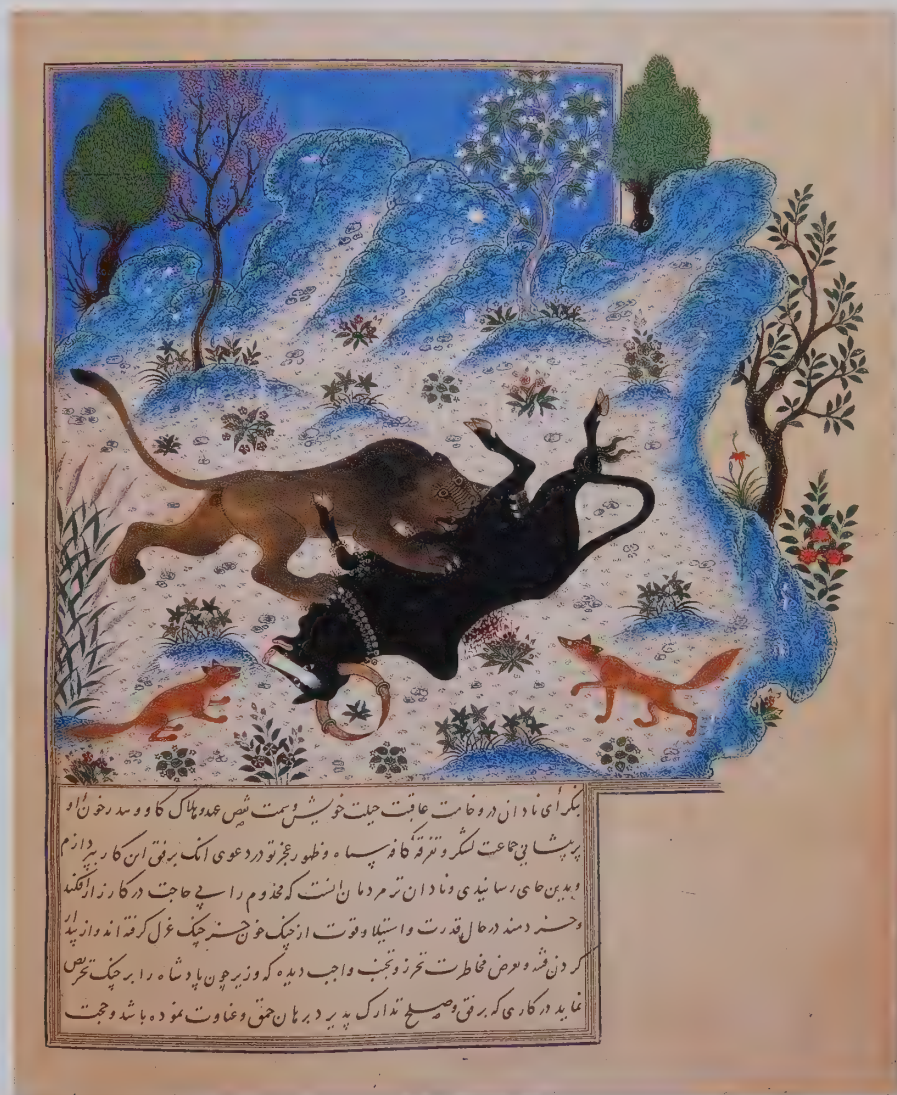 بنگر ای نادان در وخامت عاقبت حیلت خویش و سمت نقص عهد و هلاک گاو و هدر خون او
و پریشانی جماعت لشکر و تفرقه کافه سپاه و ظهور عجز تو در دعوی انک برفق این کار بپردازم
و بدین جای رسانیدی و نادان تر مردمان انست که مخدوم را بی حاجت در کارزار افکند
و خردمند در حال قدرت و استیلا و قوت از جنک چون خرچنک عزل گرفته اند و از بیدار
کردن فتنه و تعرض مخاطرت تحرز و تجنب واجب دیده که وزیر چون پادشاه را بر جنک تحریص
نماید در کاری که برفق و صلح تدارک پذیرد برهان حمق و غباوت نموده باشد و حجت